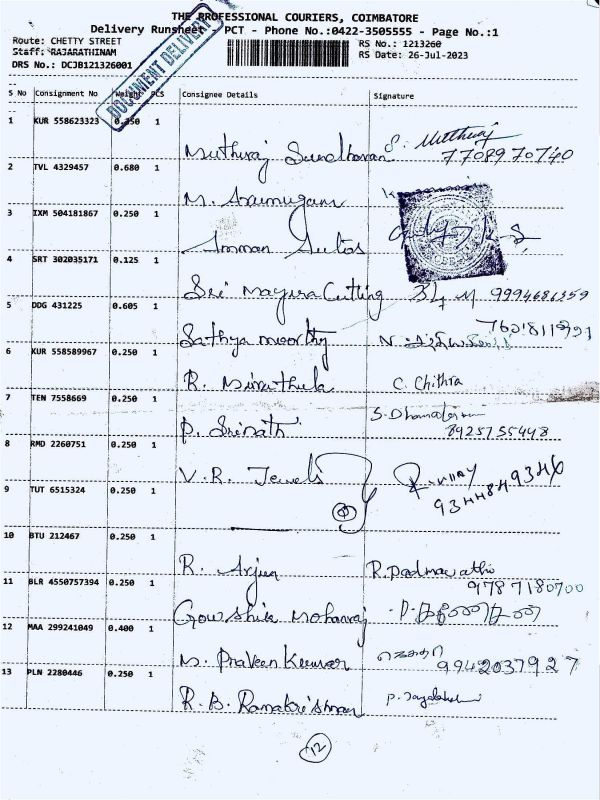 THE PROFESSIONAL COURIERS, COIMBATORE
Delivery Runsheet - PCT - Phone No.:0422-3505555 - Page No.:1
Route: CHETTY STREET RS No.: 1213260
Staff: RAJARATHINAM RS Date: 26-Jul-2023
DRS No.: DCJB121326001
DOCUMENT DELIVERY
S No Consignment No Weight PCS Consignee Details Signature
1 KUR 558623323 0.350 1
Muthuraj Sundharan S. Muthuraj
7708970740
2 TVL 4329457 0.680 1
M. Arumugam
3 IXM 504181867 0.250 1
Amman Autos
4 SRT 302035171 0.125 1
Sri Mayura Cutting 9994686359
5 DDG 431225 0.605 1
Sathya moorthy N.
6 KUR 558589967 0.250 1
R. Miruthula C. Chithra
7 TEN 7558669 0.250 1
P. Srinath S. Dhanalaxmi
8925755448
8 RMD 2260751 0.250 1
V.R. Jewels
9344849346
9 TUT 6515324 0.250 1
10 BTU 212467 0.250 1
R. Arjun R. Padmavathi
9787180700
11 BLR 4550757394 0.250 1
Gowshik Mohanraj
12 MAA 299241049 0.400 1
M. Praveen Kumar 9942037927
13 PLN 2280446 0.250 1
R. B. Ramakrishnan P. Jayalakshmi
12